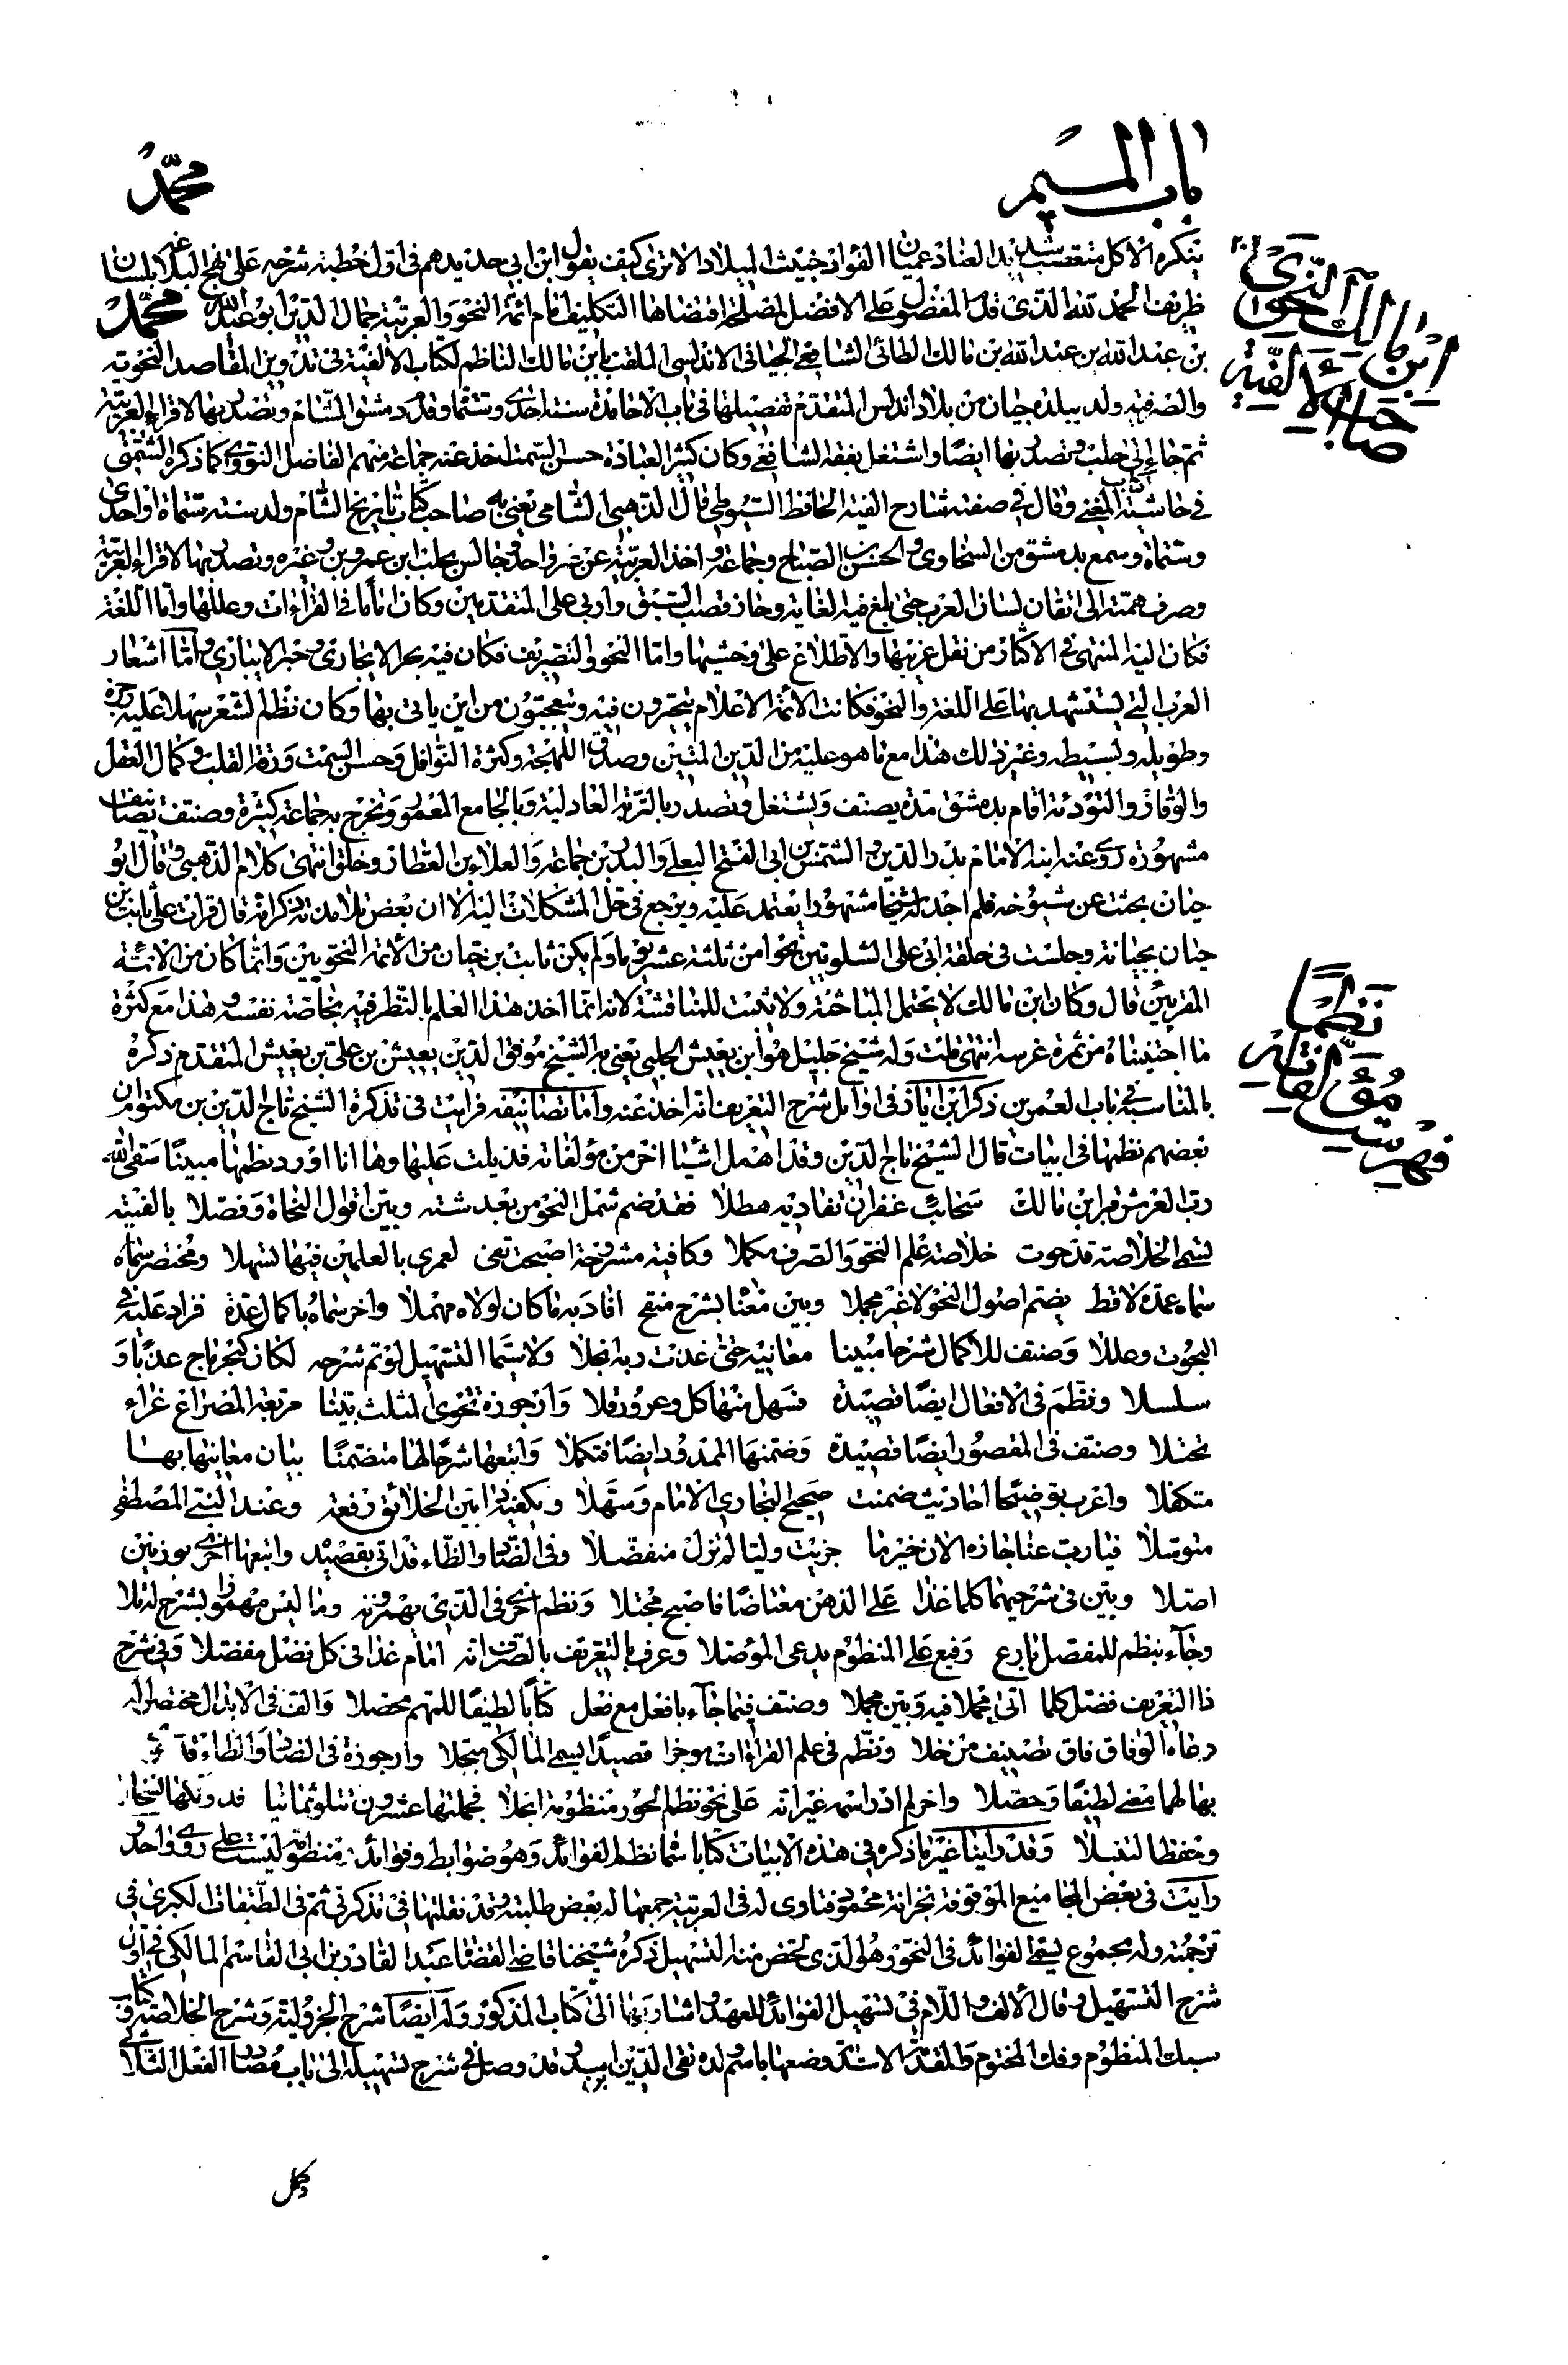 باب الميم
محمد
ينكره الا كل متعصب شديد العناد عميان الفؤاد خبيث الميلاد الا ترى كيف يقول ابن ابي حديدهم في اول خطبة شرحه على نهج البلاغة بلسان
ظريف الحمد لله الذي قدم المفضول على الافضل لمصلحة اقتضاها التكليف امام ائمة النحو والعربية جمال الدين ابو عبد الله محمد
بن عبد الله بن عبد الله بن مالك الطائي الشافعي الجياني الاندلسي الملقب بابن مالك الناظم لكتاب الالفية في تدوين المقاصد النحوية
والصرفية ولد ببلدة جيان من بلاد اندلس المتقدم تفصيلها في باب الاحامدة سنة احدى وستمأة وقدم دمشق الشام وتصدر بها لاقراء العربية
ثم جاء الى حلب وتصدر بها ايضا واشتغل بفقه الشافعي وكان كثير العبادة حسن السمت اخذ عنه جماعة منهم الفاضل النووي كما ذكره الشمني
في حاشيته المغني وقال في صفته شارح الفيته الحافظ السيوطي قال الذهبي الشامي يعني به صاحب كتاب تاريخ الشام ولد سنة ستمأة او احدى
وستمأة وسمع بدمشق من السخاوي والحسن الصباح وجماعة واخذ العربية عن غير واحد وجالس بحلب ابن عمرون وغيره وتصدر بها لاقراء العربية
وصرف همته الى اتقان لسان العرب حتى بلغ فيه الغاية وحاز قصب السبق واربى على المتقدمين وكان اماما في القراءات وعللها واما اللغة
فكان اليه المنتهى في الاكثار من نقل غريبها والاطلاع على وحشيها واما النحو والتصريف فكان فيه بحرا لا يجارى وحبرا لا يبارى واما اشعار
العرب التي يستشهد بها على اللغة والنحو فكانت الائمة الاعلام يتحيرون فيه ويتعجبون من اين ياتي بها وكان نظم الشعر سهلا عليه رجزه
وطويله وبسيطه وغير ذلك هذا مع ما هو عليه من الدين المتين وصدق اللهجة وكثرة النوافل وحسن السمت ورقة القلب وكمال العقل
والوقار والتؤدة اقام بدمشق مدة يصنف ويشتغل وتصدر بالتربة العادلية وبالجامع المعمور وتخرج به جماعة كثيرة وصنف تصانيف
مشهورة روى عنه ابنه الامام بدر الدين والشمس بن ابي الفتح البعلي والبدر بن جماعة والعلاء بن العطار وخلق انتهى كلام الذهبي وقال ابو
حيان بحثت عن شيوخه فلم اجد له شيخا مشهورا يعتمد عليه ويرجع في حل المشكلات اليه الا ان بعض تلامذته ذكر انه قال قرات على ثابت بن
حيان بجيانة وجلست في حلقة ابي علي الشلوبين نحوا من ثلثة عشر يوما ولم يكن ثابت بن حيان من الائمة النحويين وانما كان من الائمة
المقربين قال وكان ابن مالك لا يحتمل المباحثة ولا يثبت للمناقشة لانه انما اخذ هذا العلم بالنظر فيه بخاصة نفسه هذا مع كثرة
ما اجتنيناه من ثمرة غرسه انتهى قلت وله شيخ جليل هو ابن يعيش الحلبي يعني به الشيخ موفق الدين يعيش بن علي بن يعيش المتقدم ذكره
بالمناسبة في باب العمرين ذكر ابن اياز في اوايل شرح التعريف انه اخذ عنه واما تصانيفه فرايت في تذكرة الشيخ تاج الدين بن مكتوم ان
بعضهم نظمها في ابيات قال الشيخ تاج الدين وقد اهمل اشيا اخر من مؤلفاته فذيلت عليها وها انا اورد نظمها مبينا سقى الله
رب العرش قبر ابن مالك سحائب غفران تغاديه هطلا فقد ضم شمل النحو من بعد شته وبين اقوال النحاة وفصلا بالفية
تسمى الخلاصة قد حوت خلاصة علم النحو والصرف مكملا وكافية مشروحة اصبحت تفي لعمري بالعلمين فيها تسهلا ومختصر سماه
سماه عمدة لاقط يضم اصول النحو لا غير مجملا وبين معناه بشرح منقح افاد به ما كان لولاه مهملا واخر سماه باكمال عمدة فزاد عليه في
البحوث وعللا وصنف للاكمال شرحا مبينا معانيه حتى غدت ربة انجلا ولا سيما التسهيل لو تم شرحه لكان كبحر ماج عذبا و
سلسلا ونظم في الافعال ايضا قصيدة فسهل منها كل وعر وذللا وارجوزة تحوي المثلث بينا مربعة المصراع غراء
تجتلا وصنف في المقصور ايضا قصيدة وضمنها الممدود ايضا فتكملا واتبعها شرحا لها متضمنا بيان معانيها بها
متكفلا واعرب توضيحا احاديث ضمنت صحيح البخاري الامام وسهلا ويكفيه ذا بين الخلائق رفعة وعند النبي المصطفى
متوسلا فيارب عنا جازه الان خير ما جزيت وليا لم تزل متفضلا وفي الضاد والظاء قد اتى بقصيدة واتبعها اخرى بوزنين
اصلا وبين في شرحيهما كلما غدا على الذهن معتاضا فاصبح مجتلا ونظم اخرى في الذي يهمزونه وما ليس مهموزا بشرح له تلا
وجاء بنظم للمفصل بارع رفيع على المنظوم يدعى المؤصلا وعرف بالتعريف بالصرف انه امام غدا في كل فضل مفضلا وفي شرح
ذا التعريف فصل كلما اتى مجملا فيه وبين مجملا وصنف فيما جاء بافعل مع فعل كتابا لطيفا للمهم محصلا والف في الابدال مختصرا له
دعاه الوفاق فاق تصنيف من خلا ونظم في علم القراءات موجزا قصيدا يسمى المالكي مبجلا وارجوزة في الضاد والظاء قد
بها لهما معنى لطيفا وحصلا واخر لم ادر اسمه غير انه على نحو نظم الحور منظومة انجلا فجملتها عشرون تتلو ثمانيا فدونكها
وحفظا لتنبلا وقد راينا غير ما ذكره في هذه الابيات كتابا سماه نظم الفوائد وهو ضوابط وفوائد منظومة ليست على روي واحد
رايت في بعض المجاميع الموقوفة بخزانة محمود فتاوى له في العربية جمعها له بعض طلبته وقد نقلتها في تذكرتي ثم في الطبقات الكبرى في
ترجمته وله مجموع يسمى الفوائد في النحو وهو الذي لخص منه التسهيل ذكره شيخنا قاضي القضاة عبد القادر بن ابي القاسم المالكي في اول
شرح التسهيل وقال الالف واللام في تسهيل الفوائد للعهد اشار بها الى كتاب المذكور وله ايضا شرح الجزولية وشرح الخلاصة وكتاب
سبك المنظوم وفك المختوم والمقدمة الاسدية وضعها باسم ولده تقي الدين الاسد وقد وصل في شرح تسهيله الى باب مصادر الفعل الثلاثي
وكمل
ابن مالك النحوي
صاحب الالفية
نظما
فهرست مؤلفاته